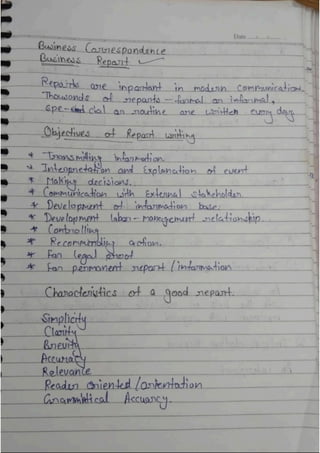 Date
Business Correspondence
Business Report
Reports are inportant in modern communication.
Thousands of reports - formal or informal,
spe- cial or routine are written every day.
Objectives of Report writing
* Transmiting Information
* Interpretation and Explanation of event
* Making decisions.
* Communication with External stakeholder.
* Development of information base.
* Development labor-management relationship.
* Controlling
* Recommending action.
* For legal proof
* For permanent report / information
Characteristics of a good report.
Simplicity
Clarity
Brevity
Accuracy
Relevance
Reader oriented / orientation
Grammatical Accuarcy.